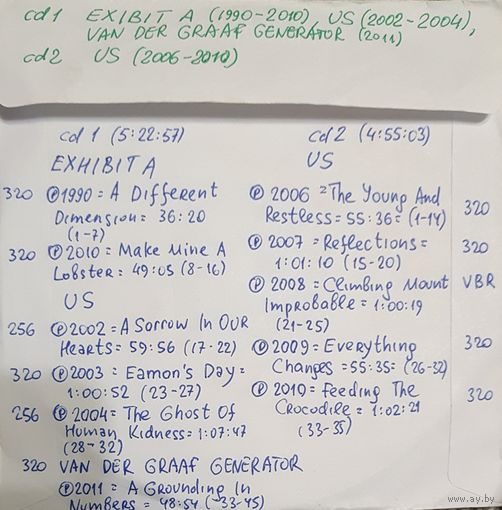 cd1 EXIBIT A (1990-2010), US (2002-2004),
VAN DER GRAAF GENERATOR (2011)
cd2 US (2006-2010)
cd 1 (5:22:57)
EXHIBIT A
320 Ⓟ1990= A Different
Dimension= 36:20
(1-7)
320 Ⓟ2010= Make Mine A
Lobster= 49:05 (8-16)
US
256 Ⓟ2002= A Sorrow In OUR
Hearts= 59:56 (17-22)
320 Ⓟ2003= Eamon's Day=
1:00:52 (23-27)
256 Ⓟ2004= The Ghost Of
Human Kidness= 1:07:47
(28-32)
320 VAN DER GRAAF GENERATOR
Ⓟ2011= A Grounding In
Numbers= 48:54 (33-45)
cd2 (4:55:03)
US
Ⓟ 2006 = The Young And
Restless= 55:36= (1-14) 320
Ⓟ 2007 = Reflections= 320
1:01:10 (15-20)
Ⓟ 2008 = Climbing Mount VBR
Improbable= 1:00:19
(21-25)
Ⓟ2009= Everything 320
Changes =55:35= (26-32)
Ⓟ 2010= Feeding The 320
Crocodile= 1:02:21
(33-35)
www.ay.by